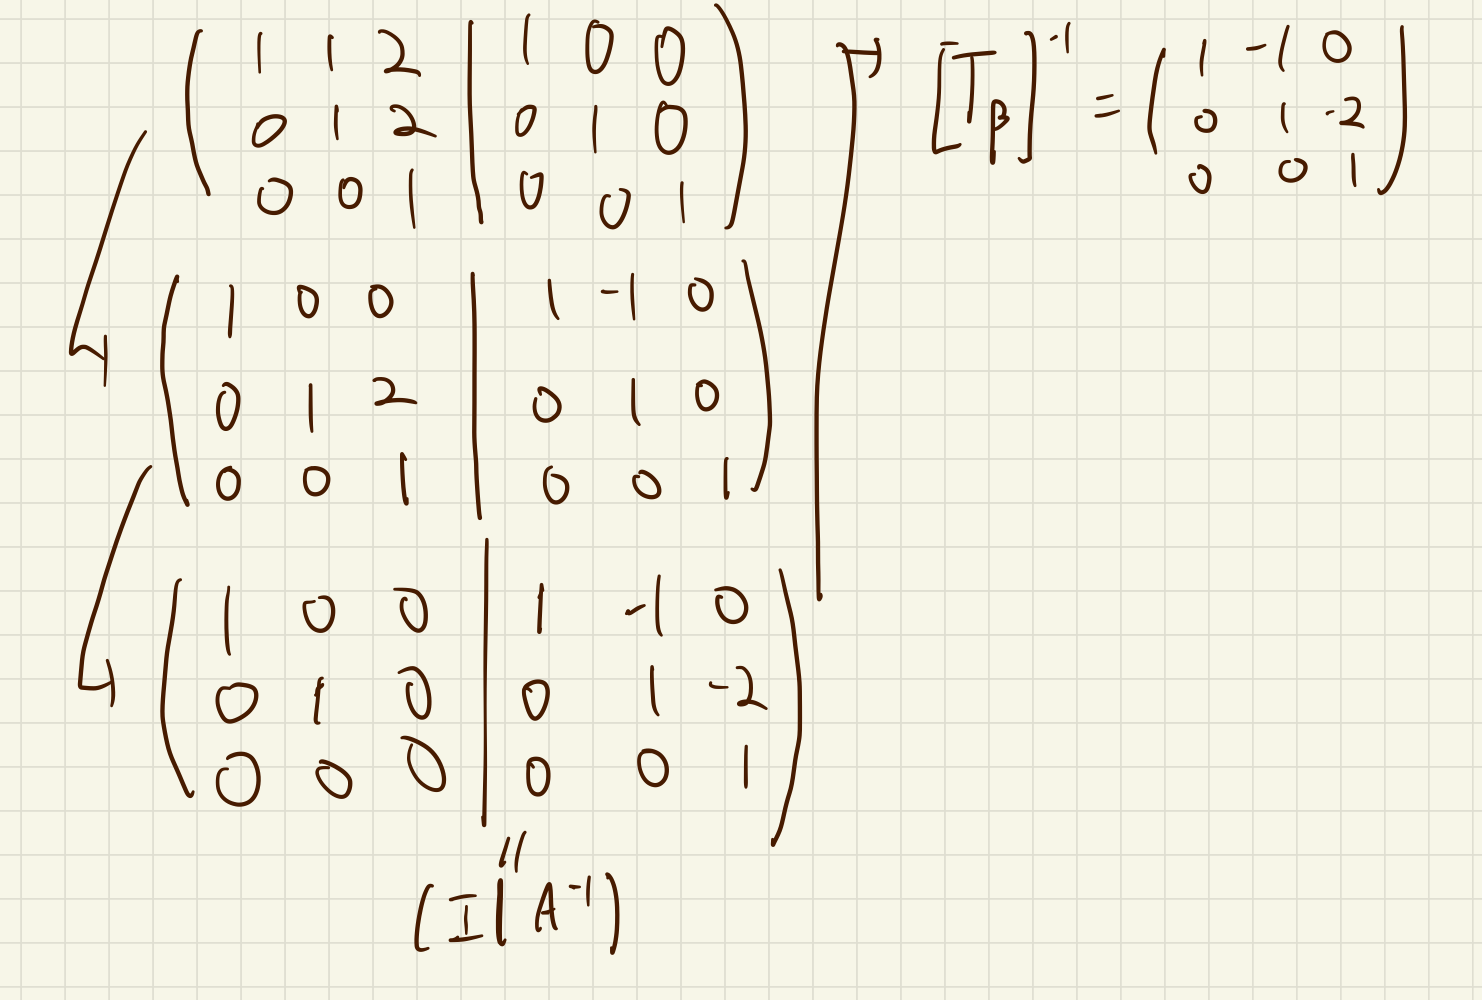 ( 1 1 2 | 1 0 0 )
( 0 1 2 | 0 1 0 )
( 0 0 1 | 0 0 1 )
( 1 0 0 | 1 -1 0 )
( 0 1 2 | 0 1 0 )
( 0 0 1 | 0 0 1 )
( 1 0 0 | 1 -1 0 )
( 0 1 0 | 0 1 -2 )
( 0 0 0 | 0 0 1 )
"
( I | A^-1 )
[T_β]^-1 =
( 1 -1 0 )
( 0 1 -2 )
( 0 0 1 )